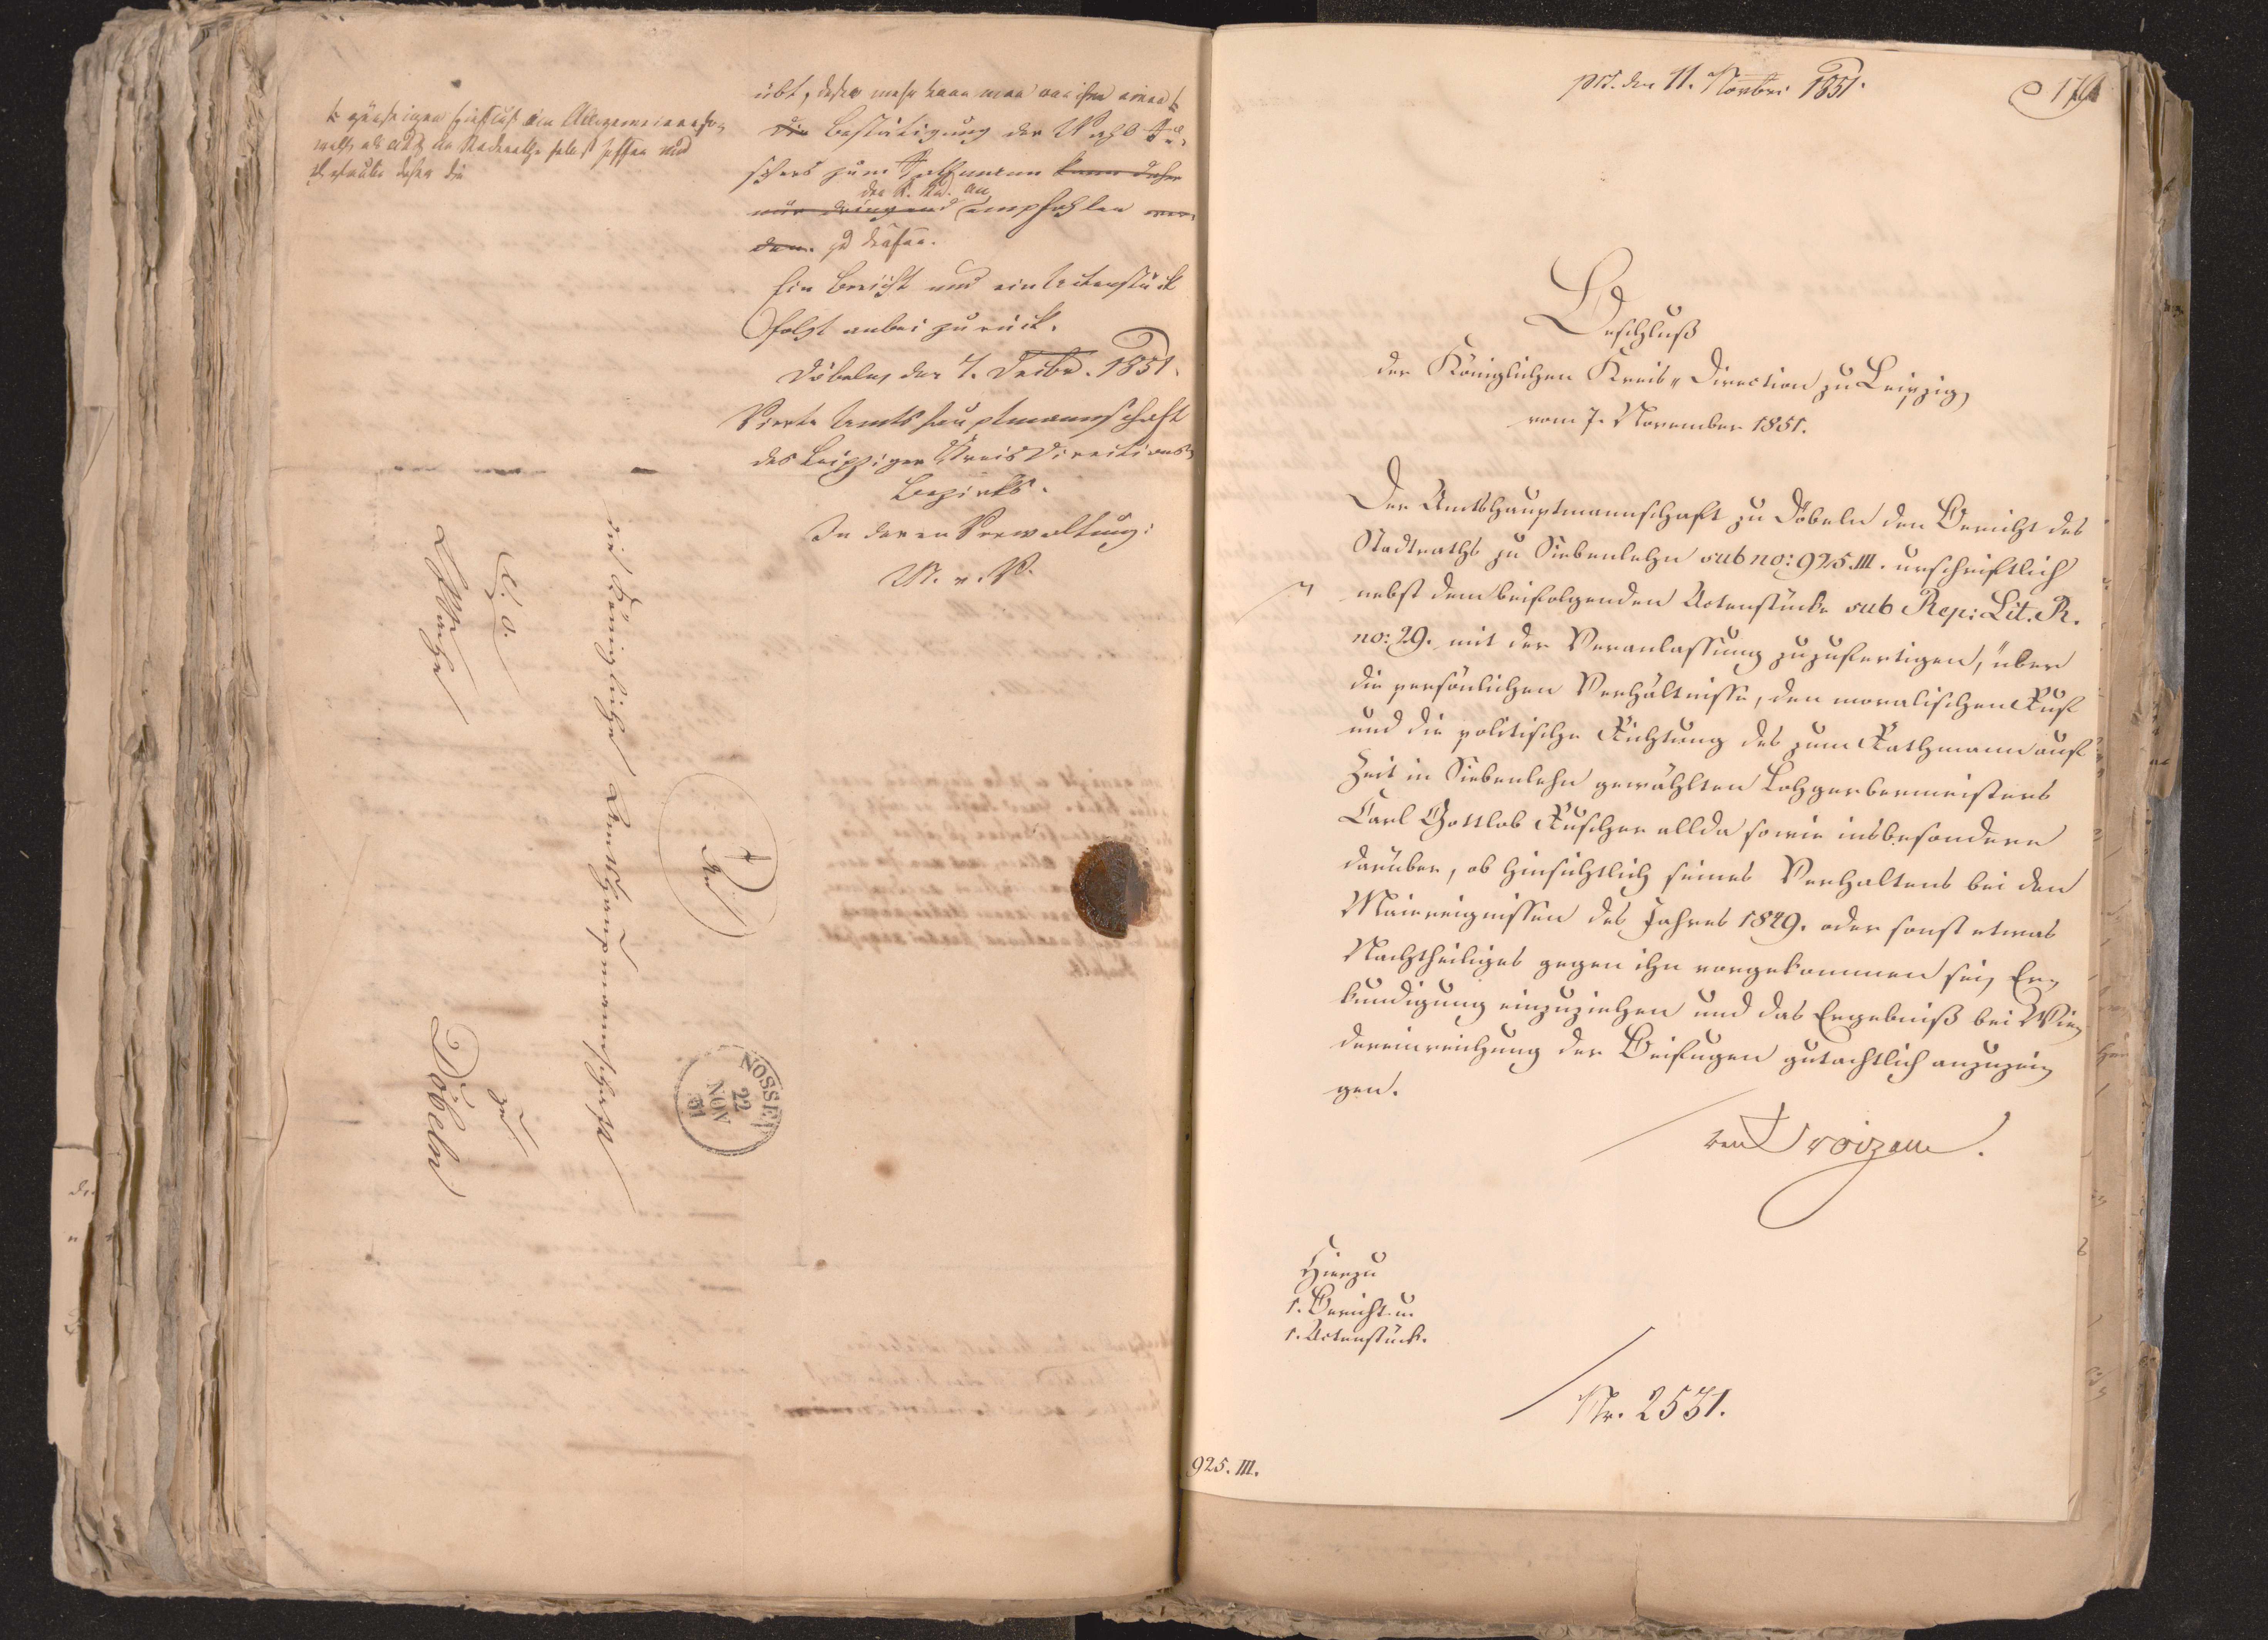 übt, desto mehr kann man von ihm einen
die Bestätigung der Wahl Ru-
schers zum Rathmann kann daher
nur dringend der K. Kd. an empfohlen wer-
den. zu dürfen.
Ein Bericht und ein Actenstück
folgt anbei zurück.
Döbeln, den 7. Decbr. 1851.
Vierte Amtshauptmannschaft
des Leipziger Kreisdirections-
Bezirks.
In deren Verwaltung:
günstigen Einfluß
im Stadtrathe selbst hoffen und
daher die
die Königliche Amtshauptmannschaft
zu
Döbeln
NOSSEN
22
NOV
51
prs. den 11. Novbri 1851.
Beschluß
der Königlichen Kreis-Direction zu Leipzig,
vom 7. November 1851.
Der Amtshauptmannschaft zu Döbeln den Bericht des
Stadtraths zu Siebenlehn sub no: 925.III. urschriftlich
nebst dem beifolgenden Actenstücke sub Rep: Lit. R.
no: 29. mit der Veranlassung zuzufertigen, über
die persönlichen Verhältnisse, den moralischen Ruf
und die politische Richtung des zum Rathmann auf
Zeit in Siebenlehn gewählten Lohgerbermeisters
Carl Gottlob Ruscher allda sowie insbesondere
darüber, ob hinsichtlich seines Verhaltens bei den
Maiereignissen des Jahres 1849. oder sonst etwas
Nachtheiliges gegen ihn vorgekommen sei, Er-
kundigung einzuziehen und das Ergebniß bei Wie-
dereinreichung der Beifugen gutachtlich anzuzei-
gen.
von Broizem.
Hierzu
1. Bericht u.
1. Actenstück.
Nr. 2531.
925. III.